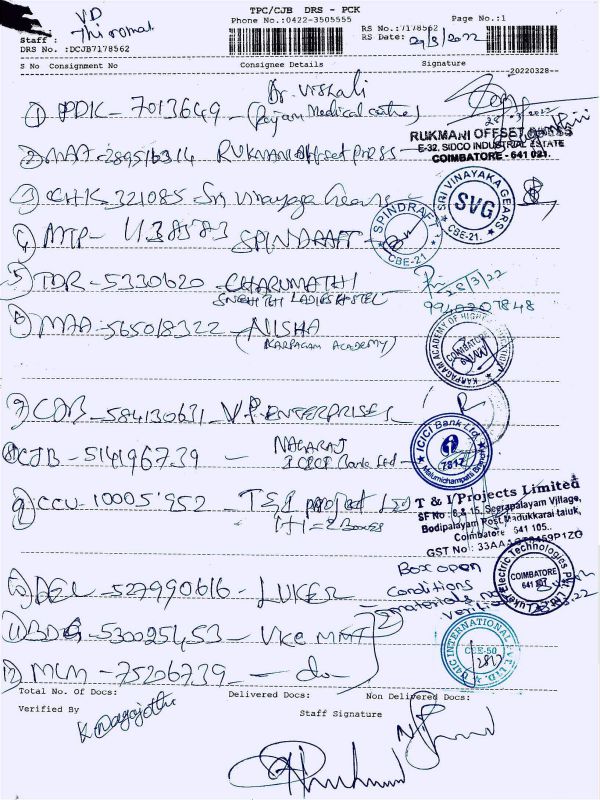 TPC/CJB DRS - PCK
Phone No.:0422-3505555
Page No.:1
VD
Staff :
DRS No. :DCJB7178562
RS No.:7178562
RS Date: 29/3/2022
S No Consignment No Consignee Details Signature
--20220328--
Dr. Vishali
① PDK - 7013649 - (Medical centre)
RUKMANI OFFSET PRESS
E-32, SIDCO INDUSTRIAL ESTATE
COIMBATORE - 641 021.
② MAA - 289516314 RUKMANI Offset press
③ CHK 321085 Sri Vinayaga Gears
SRI VINAYAKA GEARS
SVG
CBE-21.
④ SPINDRAFT
SPINDRAFT
CBE-21
⑤ TDR - 5330620 - CHARUMATHI
LADIES HOSTEL
28/3/22
9940207848
⑥ MAA - 565018322 - NISHA
(KARPAGAM ACADEMY)
KARPAGAM ACADEMY OF HIGHER EDUCATION
COIMBATORE
⑦ COB - 584130631 - V.P. ENTERPRISES
⑧ CJB - 514196739 - NAGARAJ
ICICI Bank Ltd
ICICI Bank Ltd.
Malumichampatti Branch
⑨ CCU - 100051952 - T&I project Ltd
2 Boxes
T & I Projects Limited
SF No : 6 & 15, Seerapalayam Village,
Bodipalayam Post, Madukkarai taluk,
Coimbatore 641 105..
GST No : 33AA
Box open
conditions
materials
⑩ DEL - 527990616 - LUKER
Luker Electric Technologies Pvt Ltd
COIMBATORE
⑪ BDG - 530025453 - VKC MMT
⑫ MLM - 75206739 - do -
INTERNATIONAL
CBE-50
Total No. Of Docs: Delivered Docs: Non Delivered Docs:
Verified By Staff Signature
K. Nagajothi